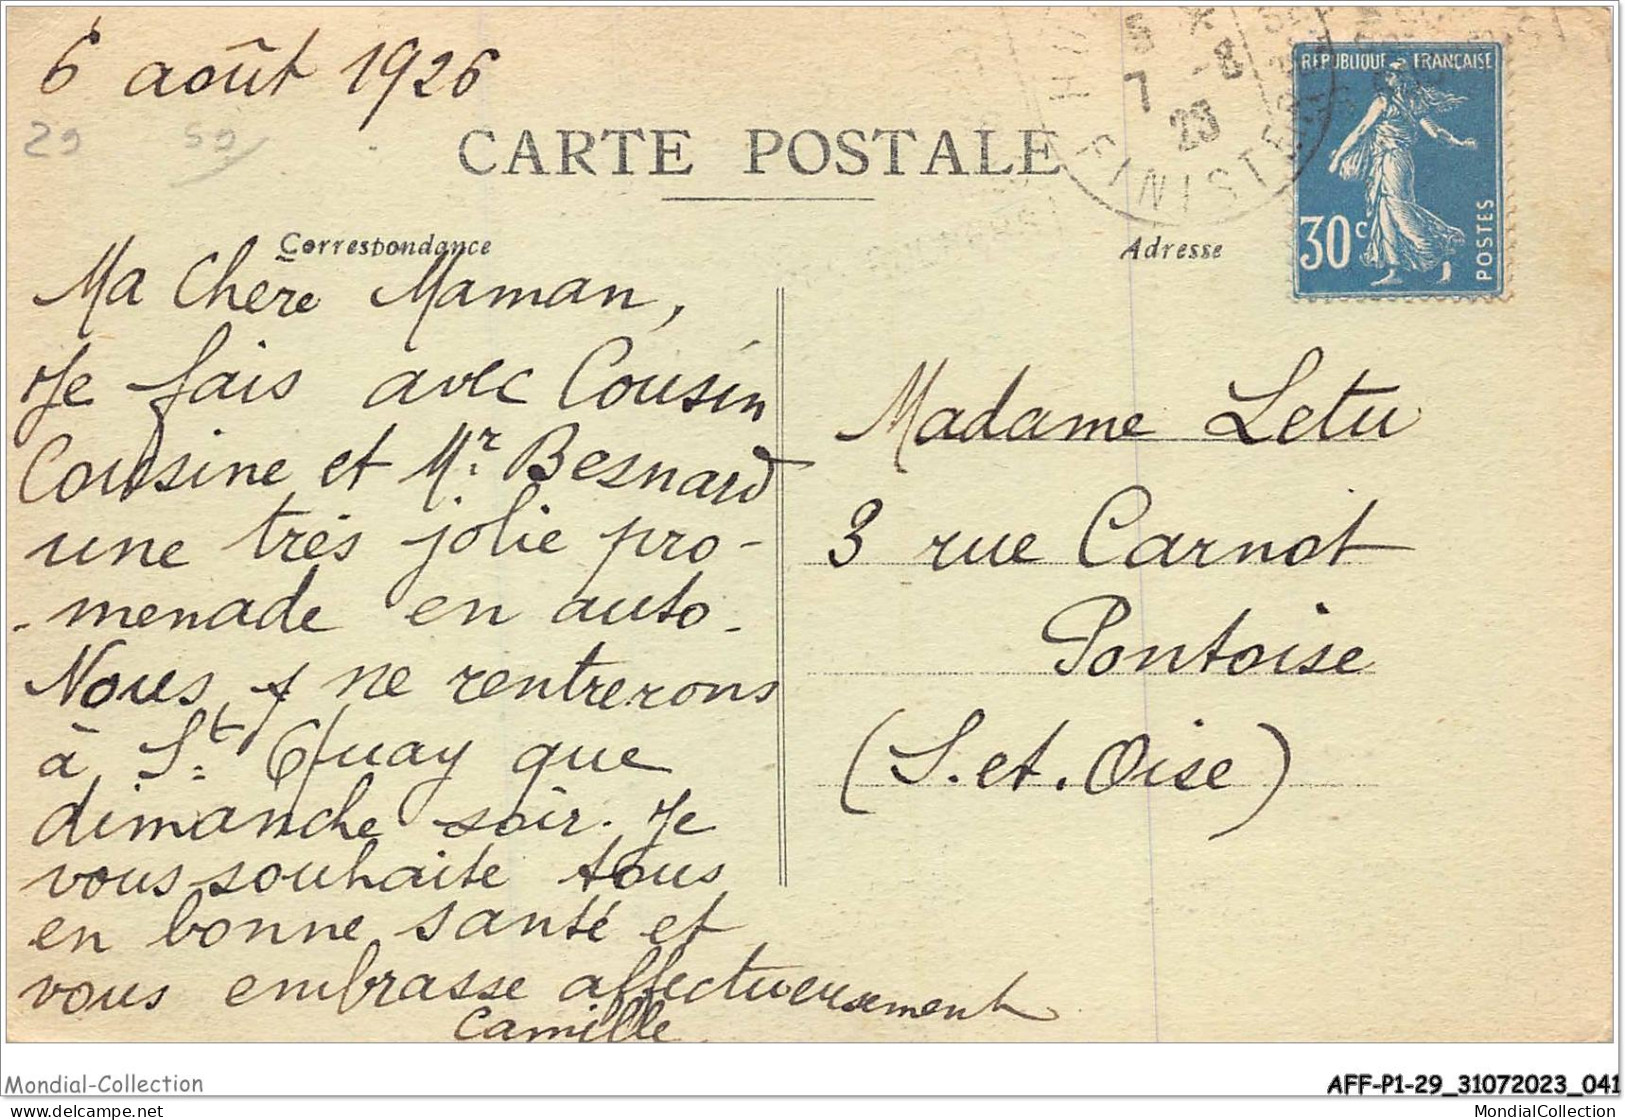 6 août 1926
29 59
CARTE POSTALE
RÉPUBLIQUE FRANÇAISE
30c
POSTES
7 -8
FINISTERE
Correspondance
Adresse
Ma Chère Maman,
Je fais avec Cousin
Cousine et Mr. Besnard
une très jolie pro-
-menade en auto.
Nous ne rentrerons
à St Quay que
dimanche soir. Je
vous souhaite tous
en bonne santé et
vous embrasse affectueusement
Camille
Madame Letu
3 rue Carnot
Pontoise
(S. et. Oise)
Mondial-Collection
AFF-P1-29_31072023_041
delcampe.net
MondialCollection